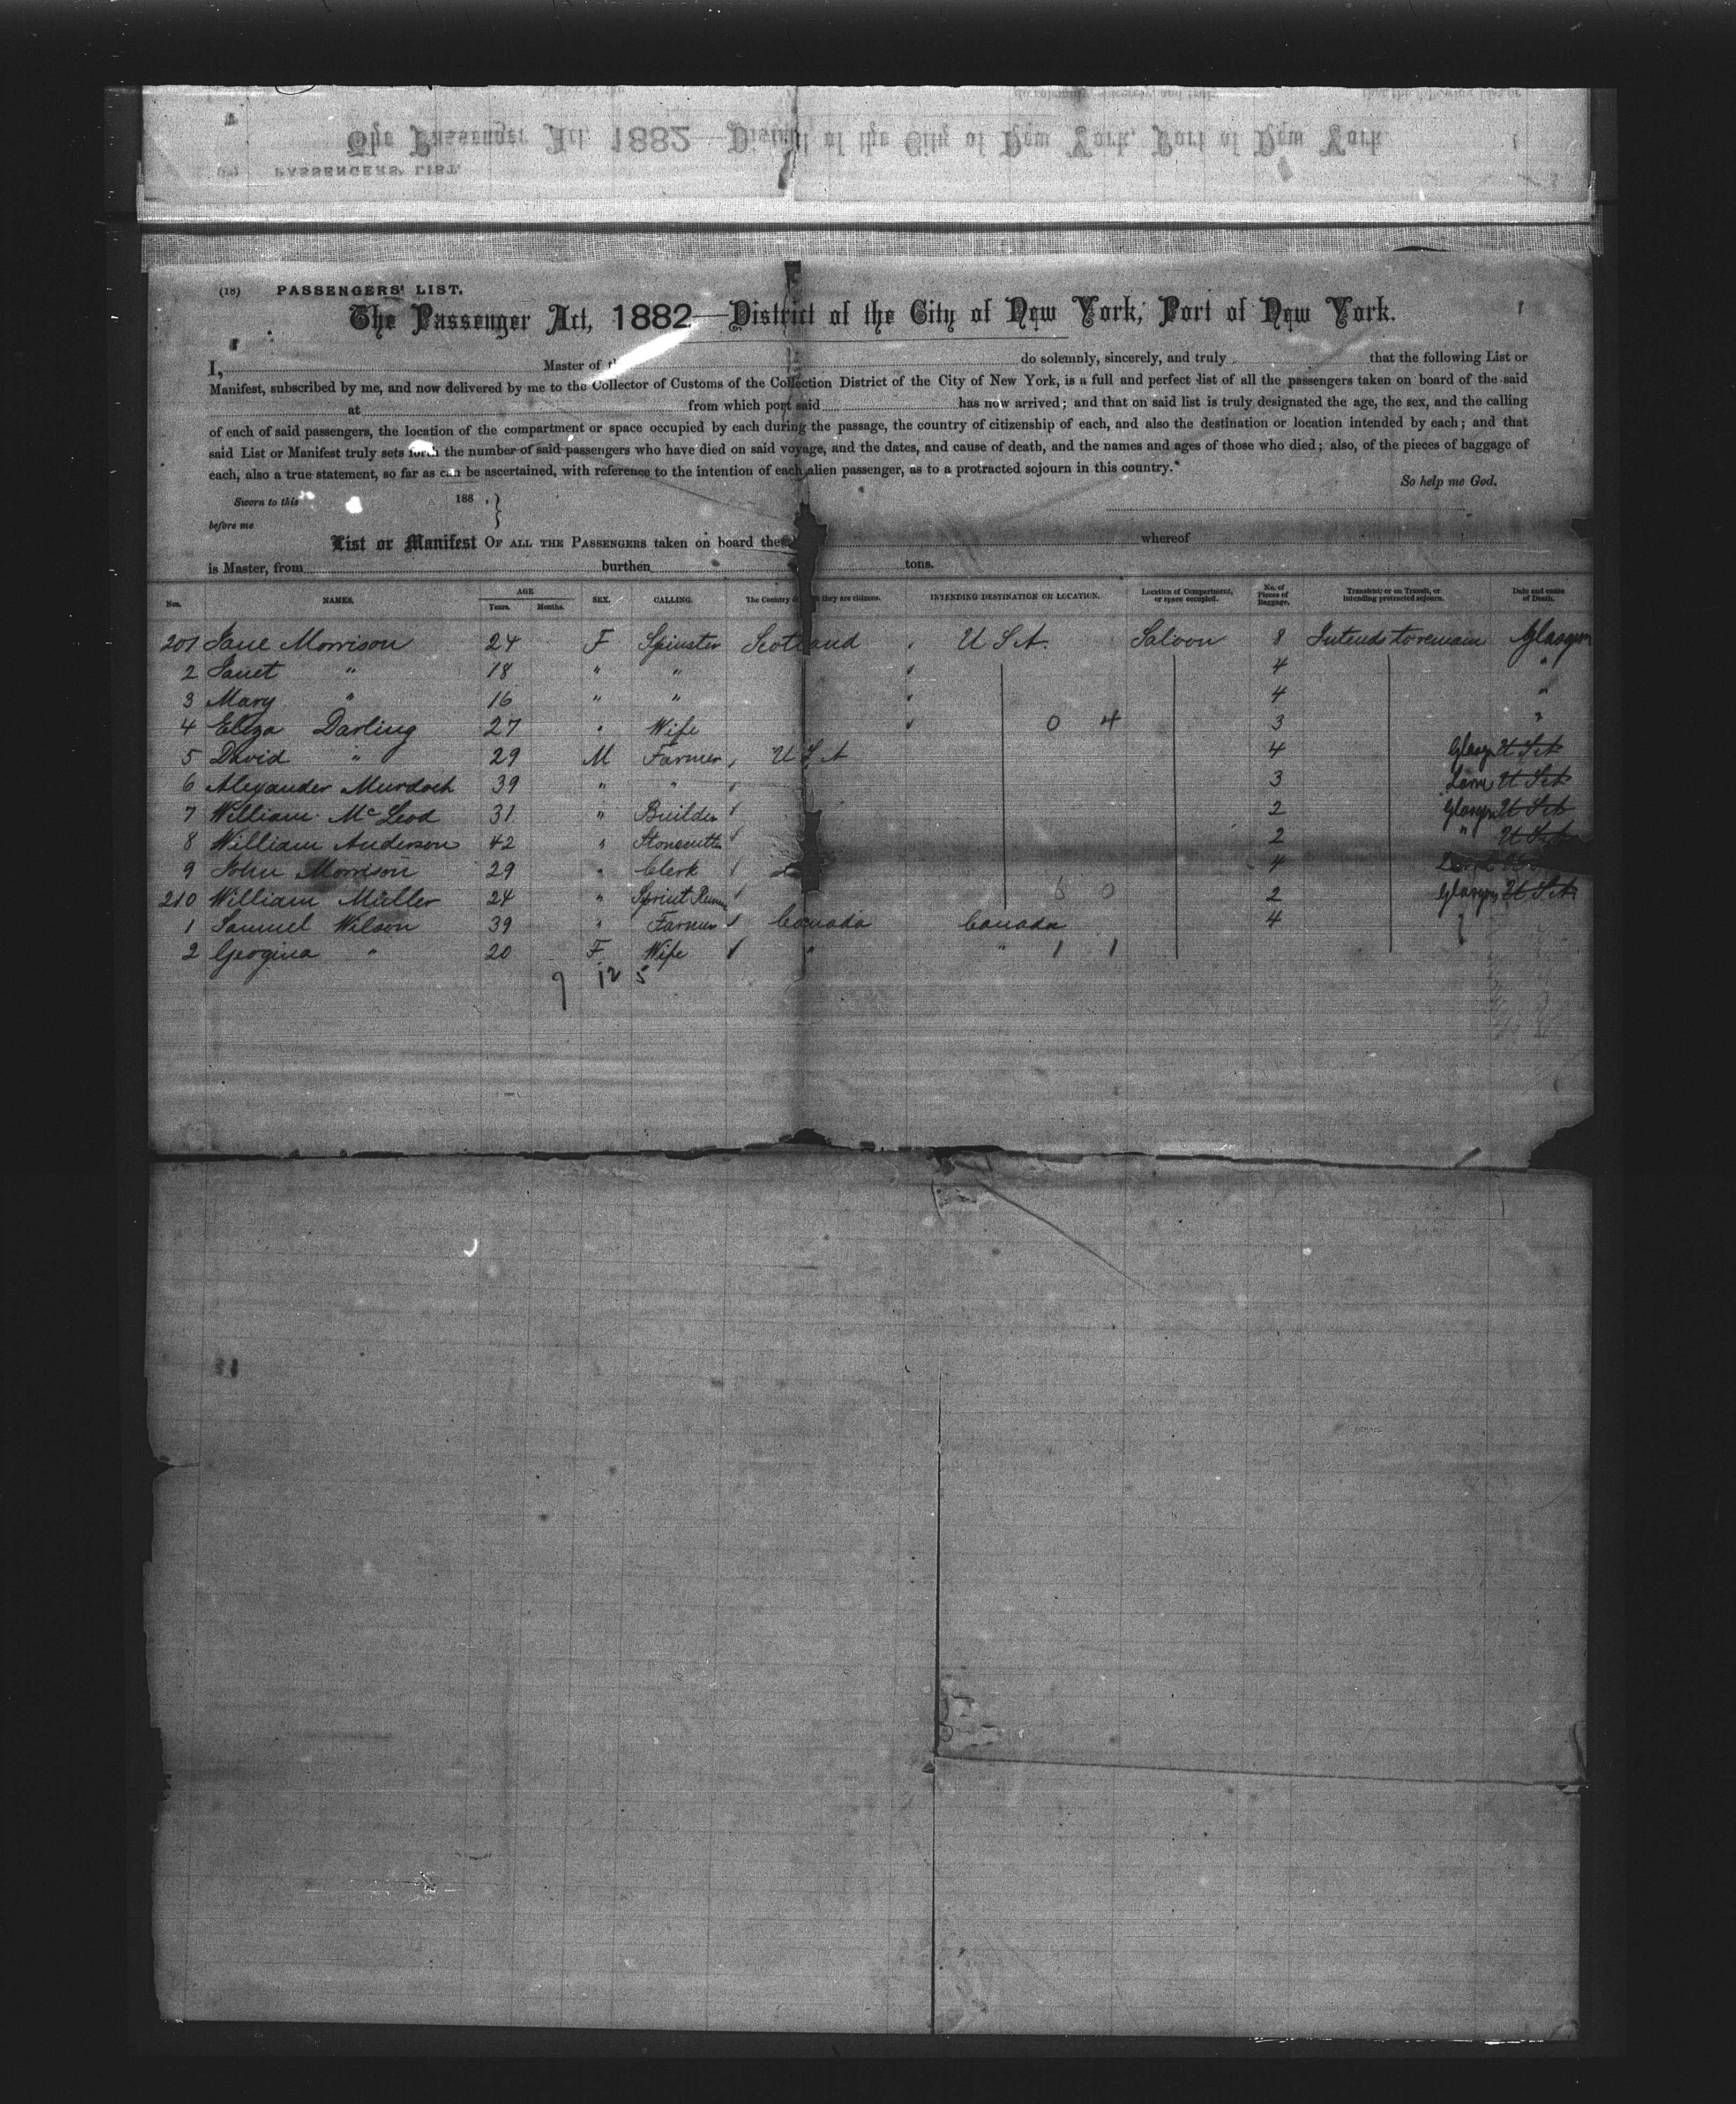 The Passenger Act, 1882—District of the City of New York, Port of New York
PASSENGERS' LIST.
(18) PASSENGERS' LIST.
The Passenger Act, 1882—District of the City of New York, Port of New York.
I, Master of do solemnly, sincerely, and truly that the following List or
Manifest, subscribed by me, and now delivered by me to the Collector of Customs of the Collection District of the City of New York, is a full and perfect list of all the passengers taken on board of the said
at from which port said has now arrived; and that on said list is truly designated the age, the sex, and the calling
of each of said passengers, the location of the compartment or space occupied by each during the passage, the country of citizenship of each, and also the destination or location intended by each; and that
said List or Manifest truly sets forth the number of said passengers who have died on said voyage, and the dates, and cause of death, and the names and ages of those who died; also, of the pieces of baggage of
each, also a true statement, so far as can be ascertained, with reference to the intention of each alien passenger, as to a protracted sojourn in this country.
So help me God.
Sworn to this 188 . }
before me
List or Manifest OF ALL THE PASSENGERS taken on board the whereof
is Master, from burthen tons.
Nos. NAMES. AGE Years. Months. SEX. CALLING. The Country of they are citizens. INTENDING DESTINATION OR LOCATION. Location of Compartment, or space occupied. No. of Pieces of Baggage. Transient, or on Transit, or intending protracted sojourn. Date and cause of Death.
201 Jane Morrison 24 F Spinster Scotland U S A. Saloon 8 Intends to remain Glasgow
2 Janet " 18 " " 4 "
3 Mary " 16 " " 4 "
4 Eliza Darling 27 " Wife 0 4 3 "
5 David " 29 M Farmer U S A 4 Glasgw U S A
6 Alexander Murdoch 39 " " 3 U S A
7 William McLeod 31 " Builder 2 Glasgw U S A
8 William Anderson 42 " Stonecutter 2 " U S A
9 John Morrison 29 " Clerk 4
210 William Müller 24 " 6 0 2 Glasgw U S A
1 Samuel Wilson 39 " Farmer Canada Canada 4
2 Georgina " 20 F Wife " " 1 1
9 12 5